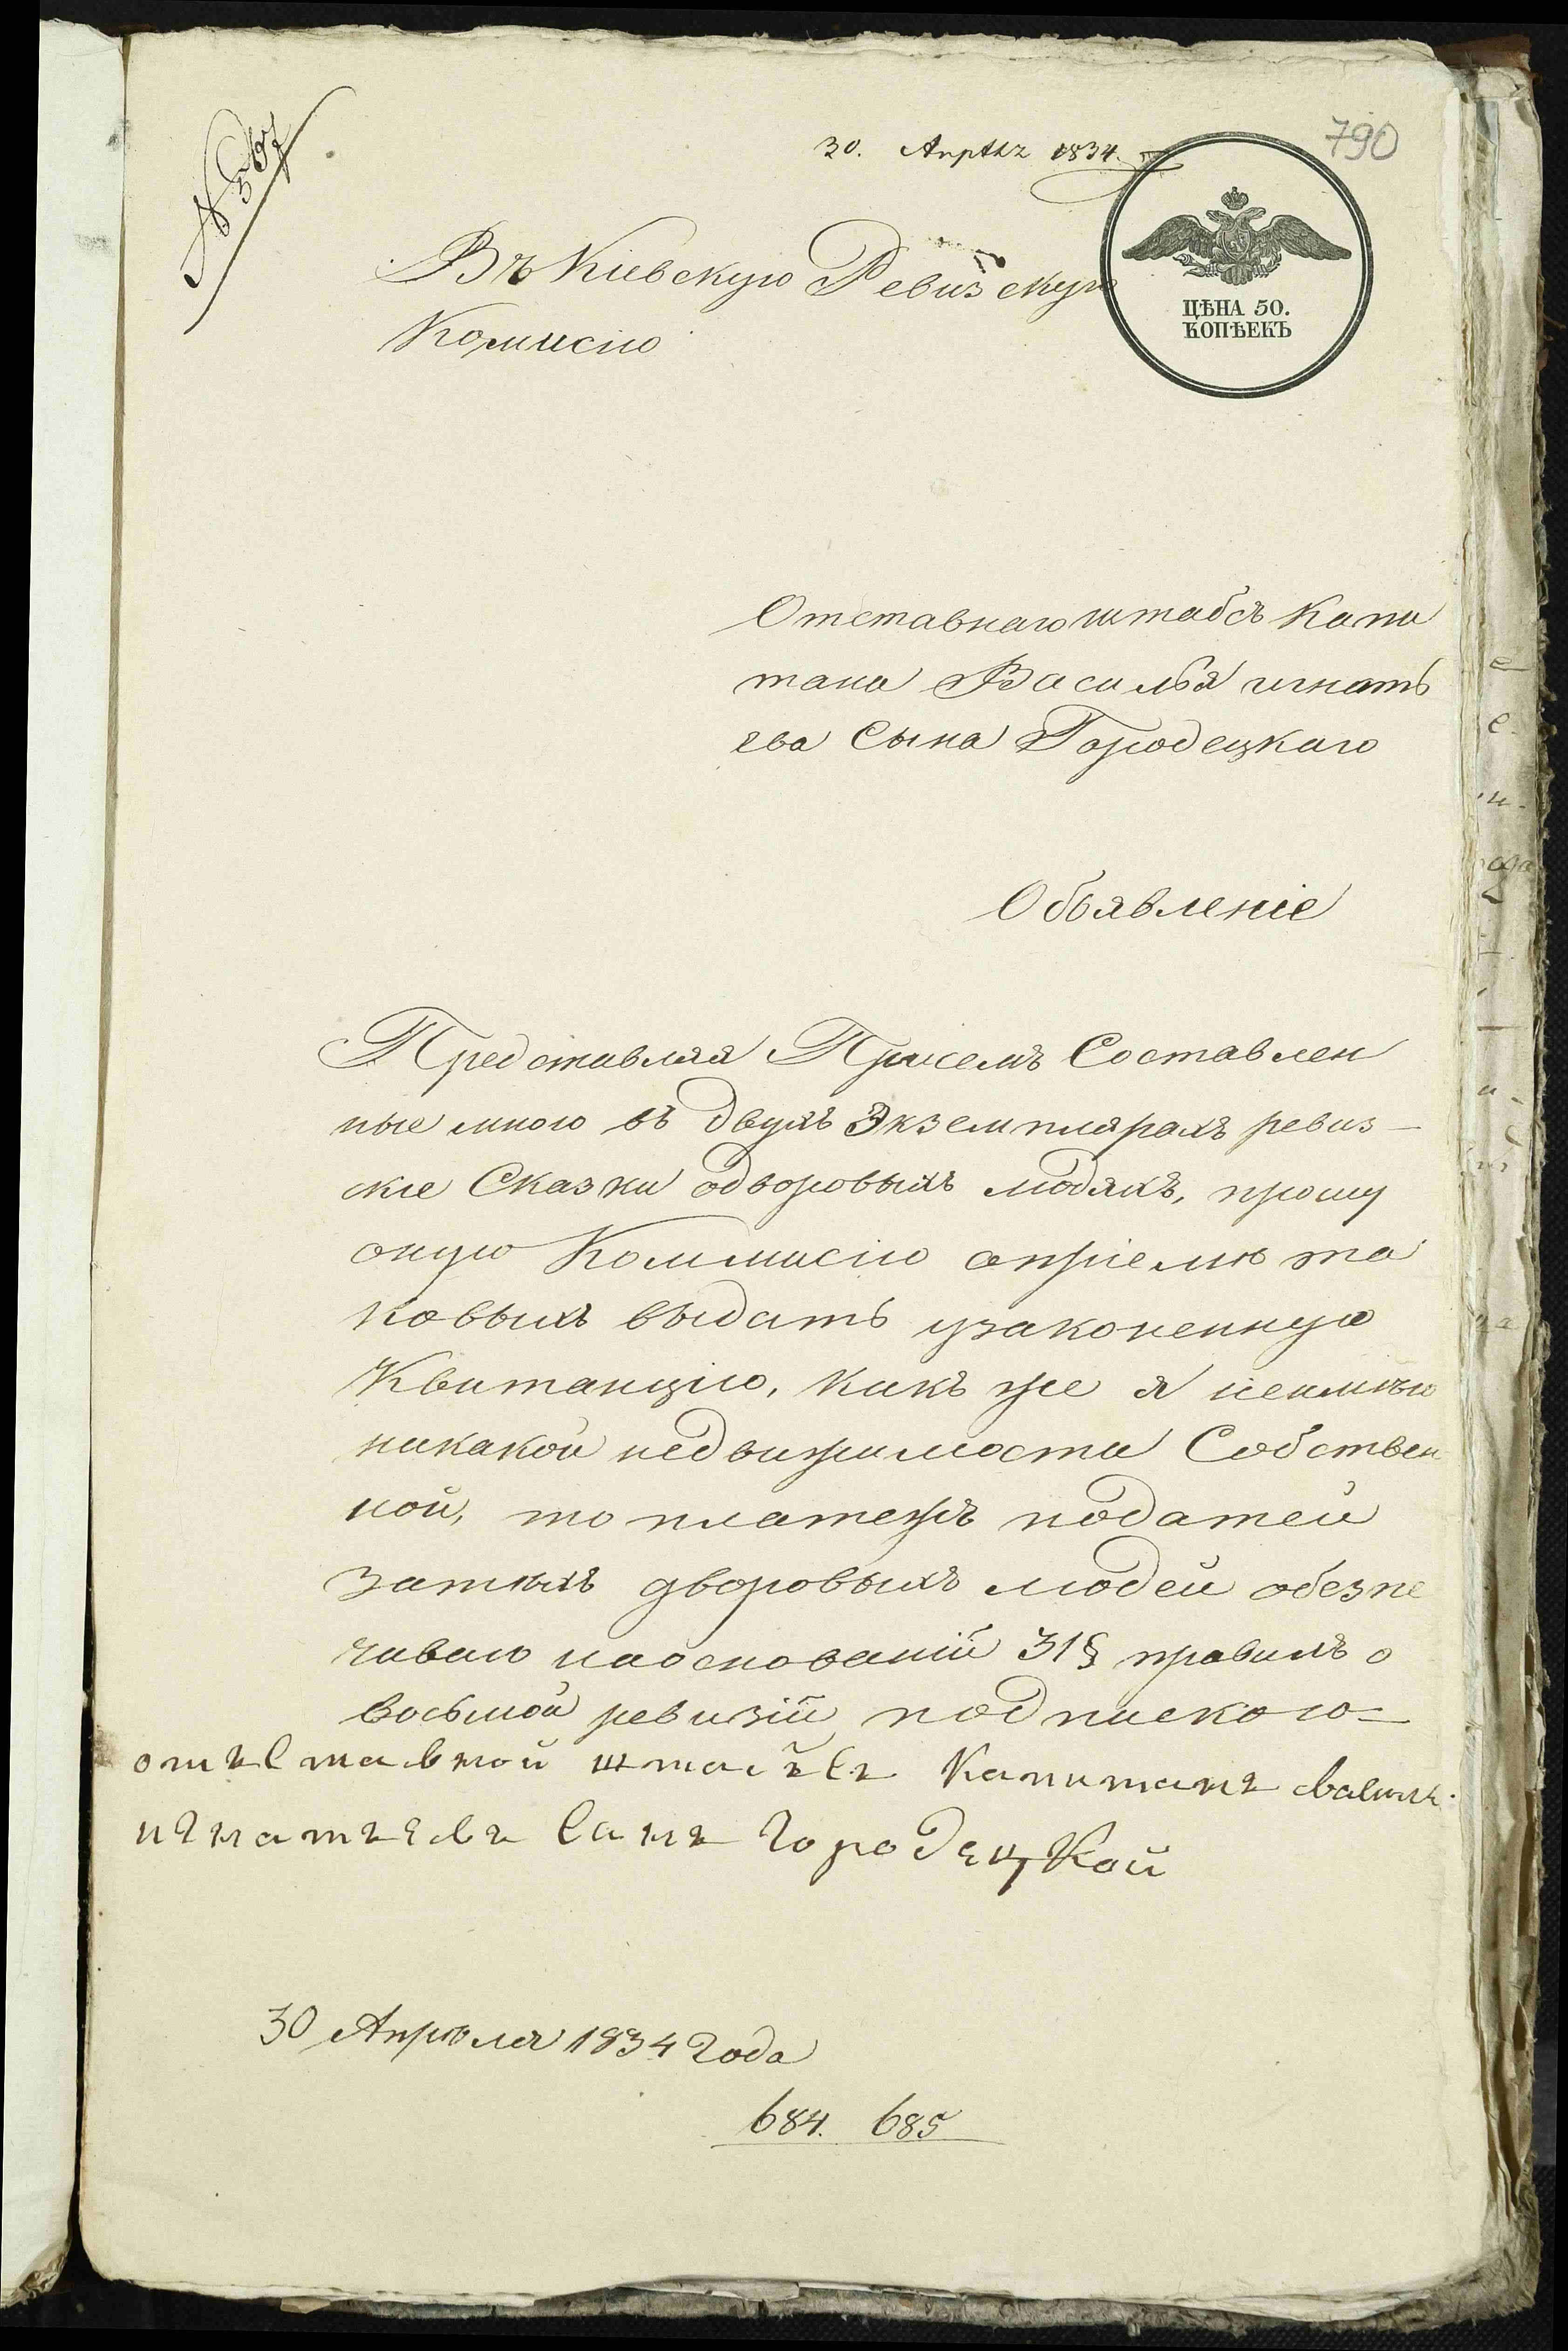 790
30. Апрѣлъ 1834.
Въ Кіевскую Ревизскую
Комисію
ЦѢНА 50.
КОПѢЕКЪ
Отставнаго штабсъ Капи
тана Василья игнать
ева Сына Городецкаго
Объявленіе
Представляя Присемъ Составлен
ные мною въ двухъ Экземплярахъ ревиз-
скіе Сказки одворовыхъ людяхъ, прошу
оную Коммисію опріемѣ та
ковыхъ выдать узаконенную
Квитанцію, какъ же я неимѣю
никакой недвижимости Собствен
ной, то платежъ податей
затѣхъ дворовыхъ людей обезпе
чиваю наоснованіи 31§ правилъ о
восьмой ревизіи подпискою-
отъставной штабъсъ Капитанъ василь
игнатъевъ Санъ городецкой
30 Апрѣля 1834 Года
684. 685